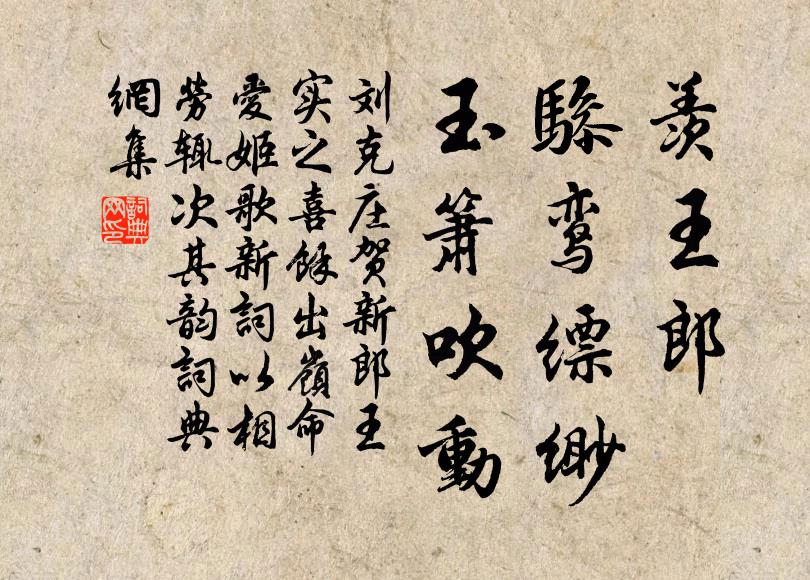 羨王郎
驂鸾缥缈
玉箫吹動
刘克庄贺新郎王
实之喜餘出嶺命
愛姬歌新詞以相
劳辄次其韵詞典
網集
詞典
网印